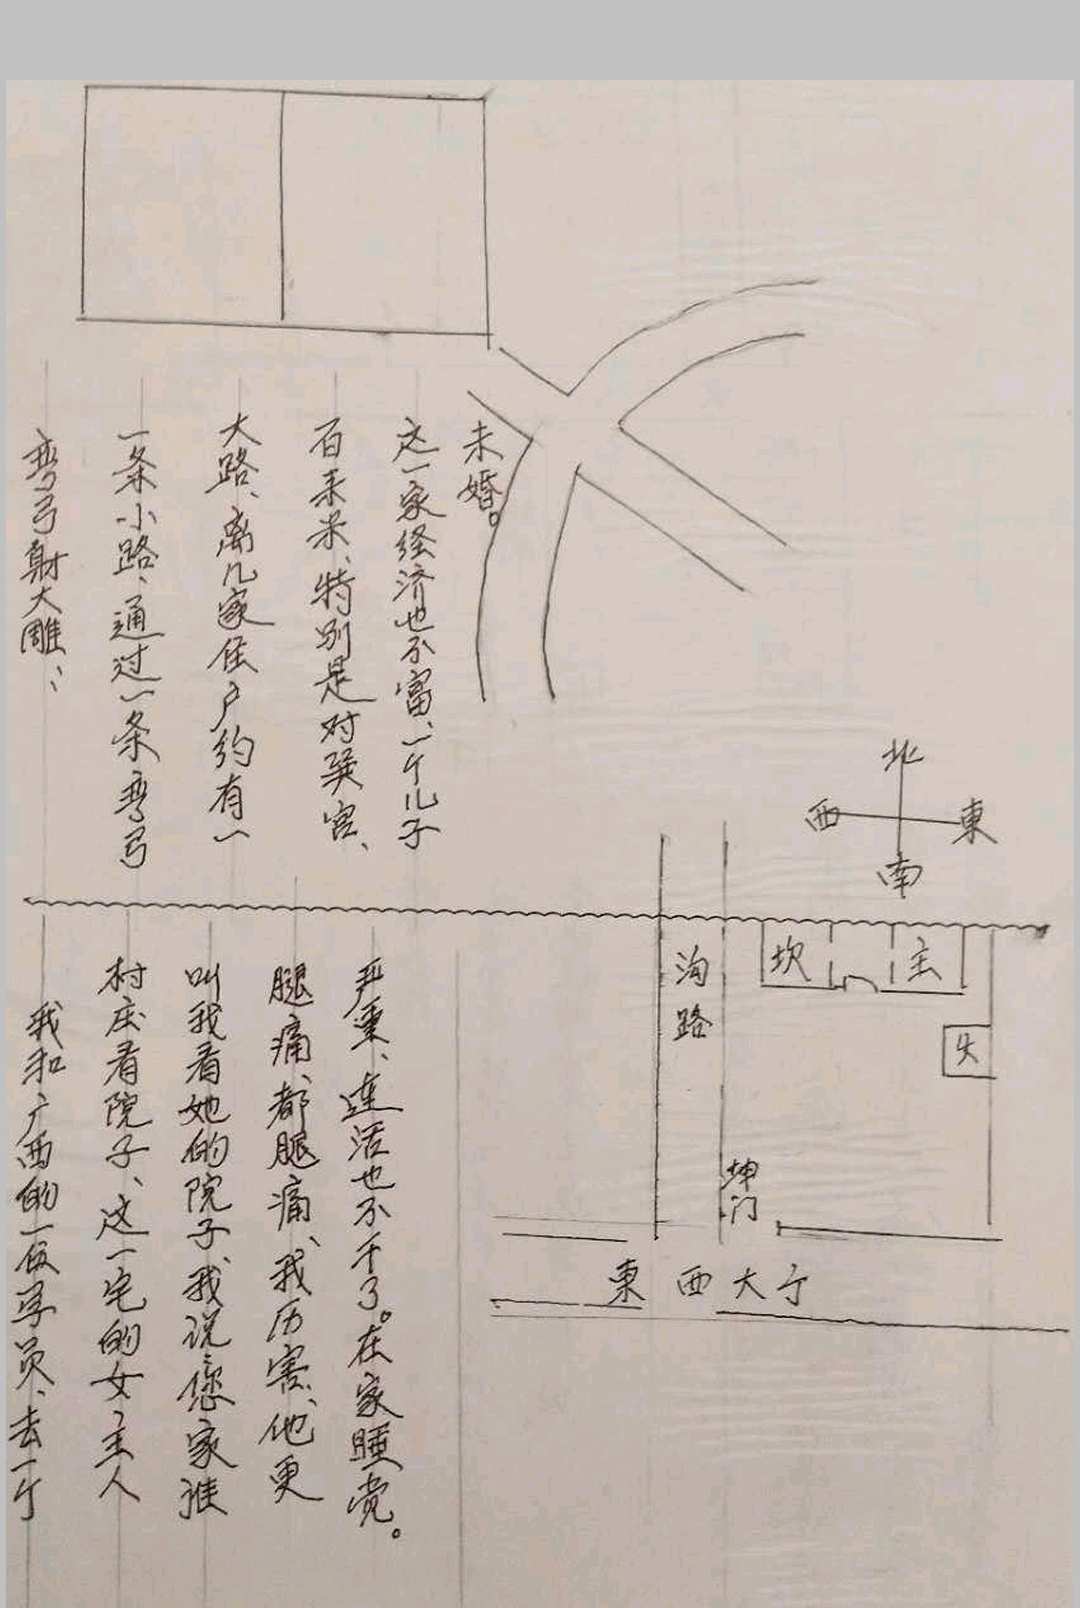 弯弓射大雕：
一条小路、通过一条弯弓
大路、离几家住户约有一
百来米、特别是对巽宫、
这一家经济也不富、一个儿子
未婚。
北
西 東
南
我和广西的一位学员、去一个
村庄看院子、这一宅的女主人
叫我看她的院子、我说您家谁
腿痛、都腿痛、我历害、他更
严重、连活也不干了。在家睡觉。
沟路
坎 主
灶
坤门
東西大行